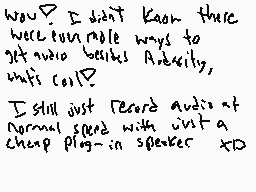 wow♡ I didn't know there
were even more ways to
get audio besides Audacity,
that's cool♡
I still just record audio at
normal speed with just a
cheap plug-in speaker XD